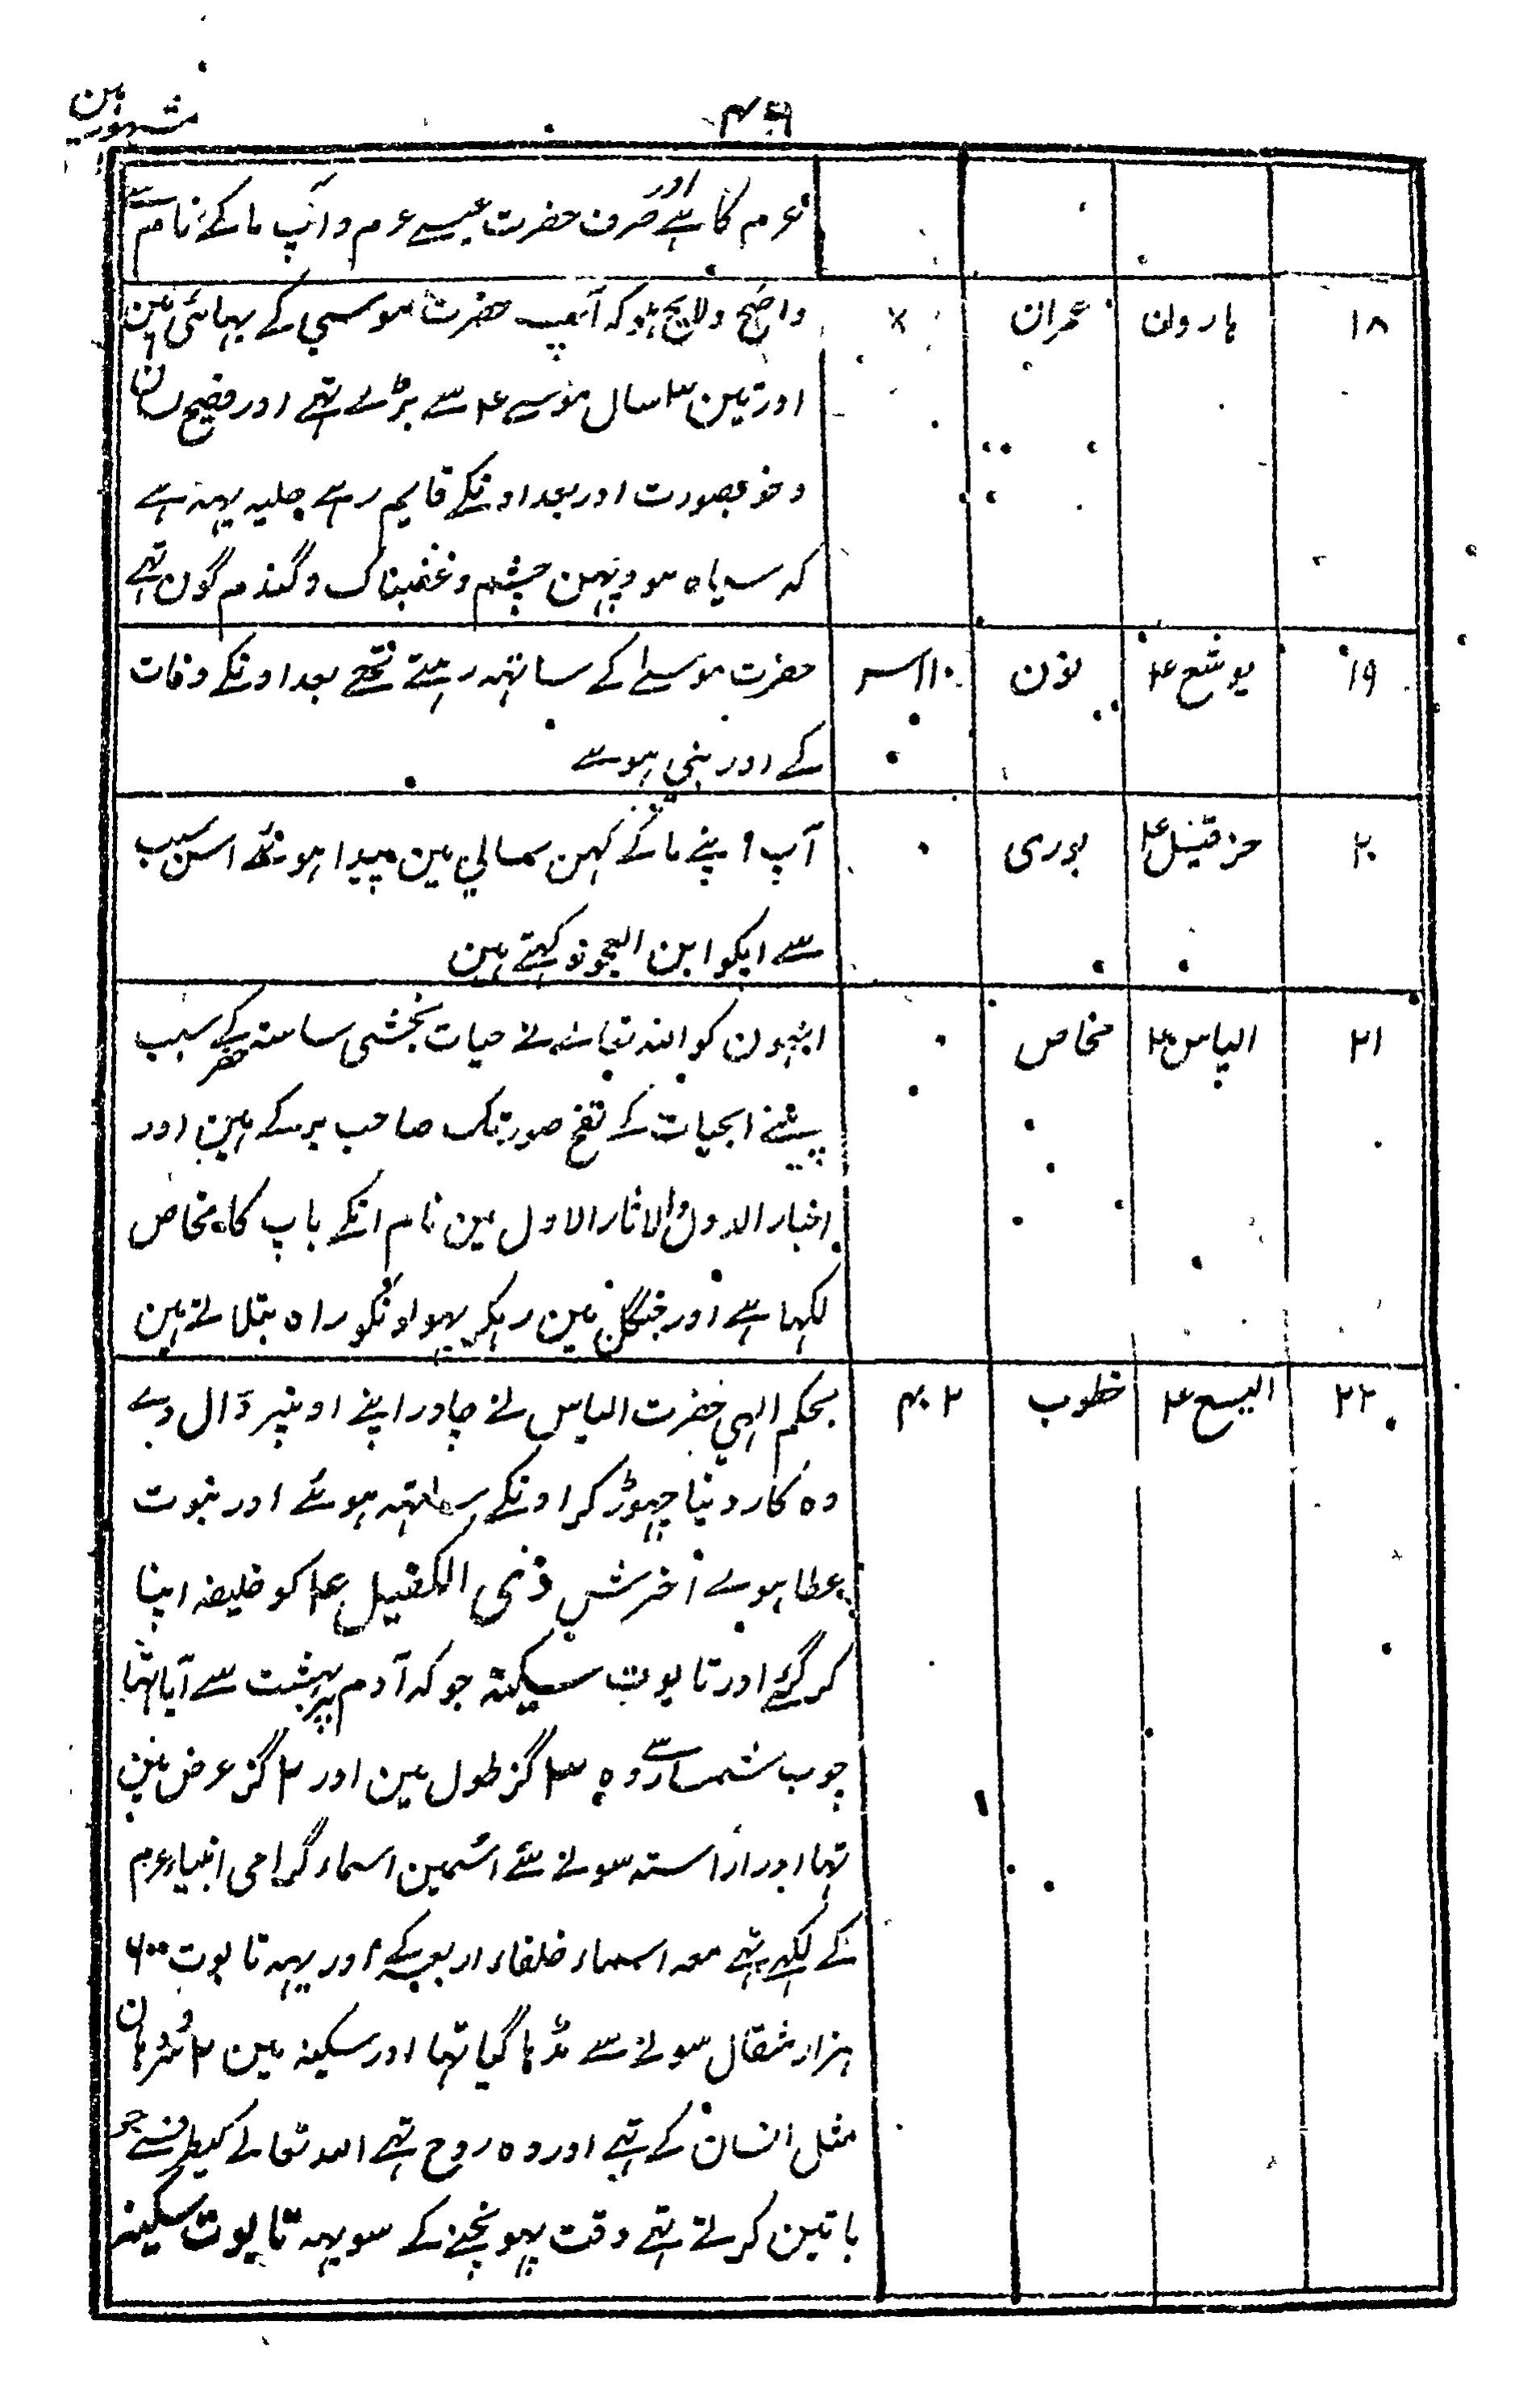 ۴۶
مشہور ہین
عرم کا ہے اور صرف حضرت عیسے عرم و آپ ما کے نام سے
۱۸ ہارون عمران × واضح ولایح ہو کہ آپ حضرت موسی کے بہائی ہین
اور تین ۳ سال موسے ۴ سے بڑے تہے اور فصیح لسان
و خوبصورت اور بعد اونکے قایم رہے حلیہ یہہ ہے
کہ سیاہ مو و پہن چشم و غضبناک و گندم گون تہے
۱۹ یوشع ۴ نون ۱۱۰ حضرت موسیٰ کے ساتہہ رہتے تھے بعد اونکے وفات
کے اور بنی ہوے
۲۰ حزقیل ۴ بوری ۰ آپ اپنے ما کے کہن سالی مین پیدا ہوئے اس سبب
سے اپکو ابن العجوز کہتے ہین
۲۱ الیاس ۴ مخاص ۰ انہون کو اللہ تعالے نے حیات بخشی ساتہ خضر کے سبب
پینے ابحیات کے نفخ صور تک صاحب بر کے ہین اور
اخبار الدول والاثار الاول مین نام انکے باپ کا مخاص
لکہا ہے اور جنگل مین رہکر بہولونکو راہ بتلاتے ہین
۲۲ الیسع ۴ خطوب ۴۰۲ بحکم الہی حضرت الیاس نے چادر اپنے اونپر ڈال دے
وہ کار دنیا چہوڑ کر اونکے ساتہہ ہوئے اور نبوت
عطا ہوے آخرش ذی الکفیل ۴ کو خلیفہ اپنا
کر گئے اور تابوت سکینہ جو کہ آدم پر بہشت سے آیا تہا
چوب شمسار سے وہ ۳ گز طول مین اور ۲ گز عرض مین
تہا اور اراستہ سونے سے اسمین اسماء گرامی انبیاء عرم
کے لکہے تہے معہ اسماء خلفاء اربعہ کے اور یہہ تابوت ۶۰۰
ہزار مثقال سونے سے مڈہا گیا تہا اور سکینہ مین ۲
مثل انسان کے تہے اور وہ روح تہے اللہ تعالے کیطرفسے جو
باتین کرتے تہے وقت پہونچنے کے سو یہہ تابوت سکینہ